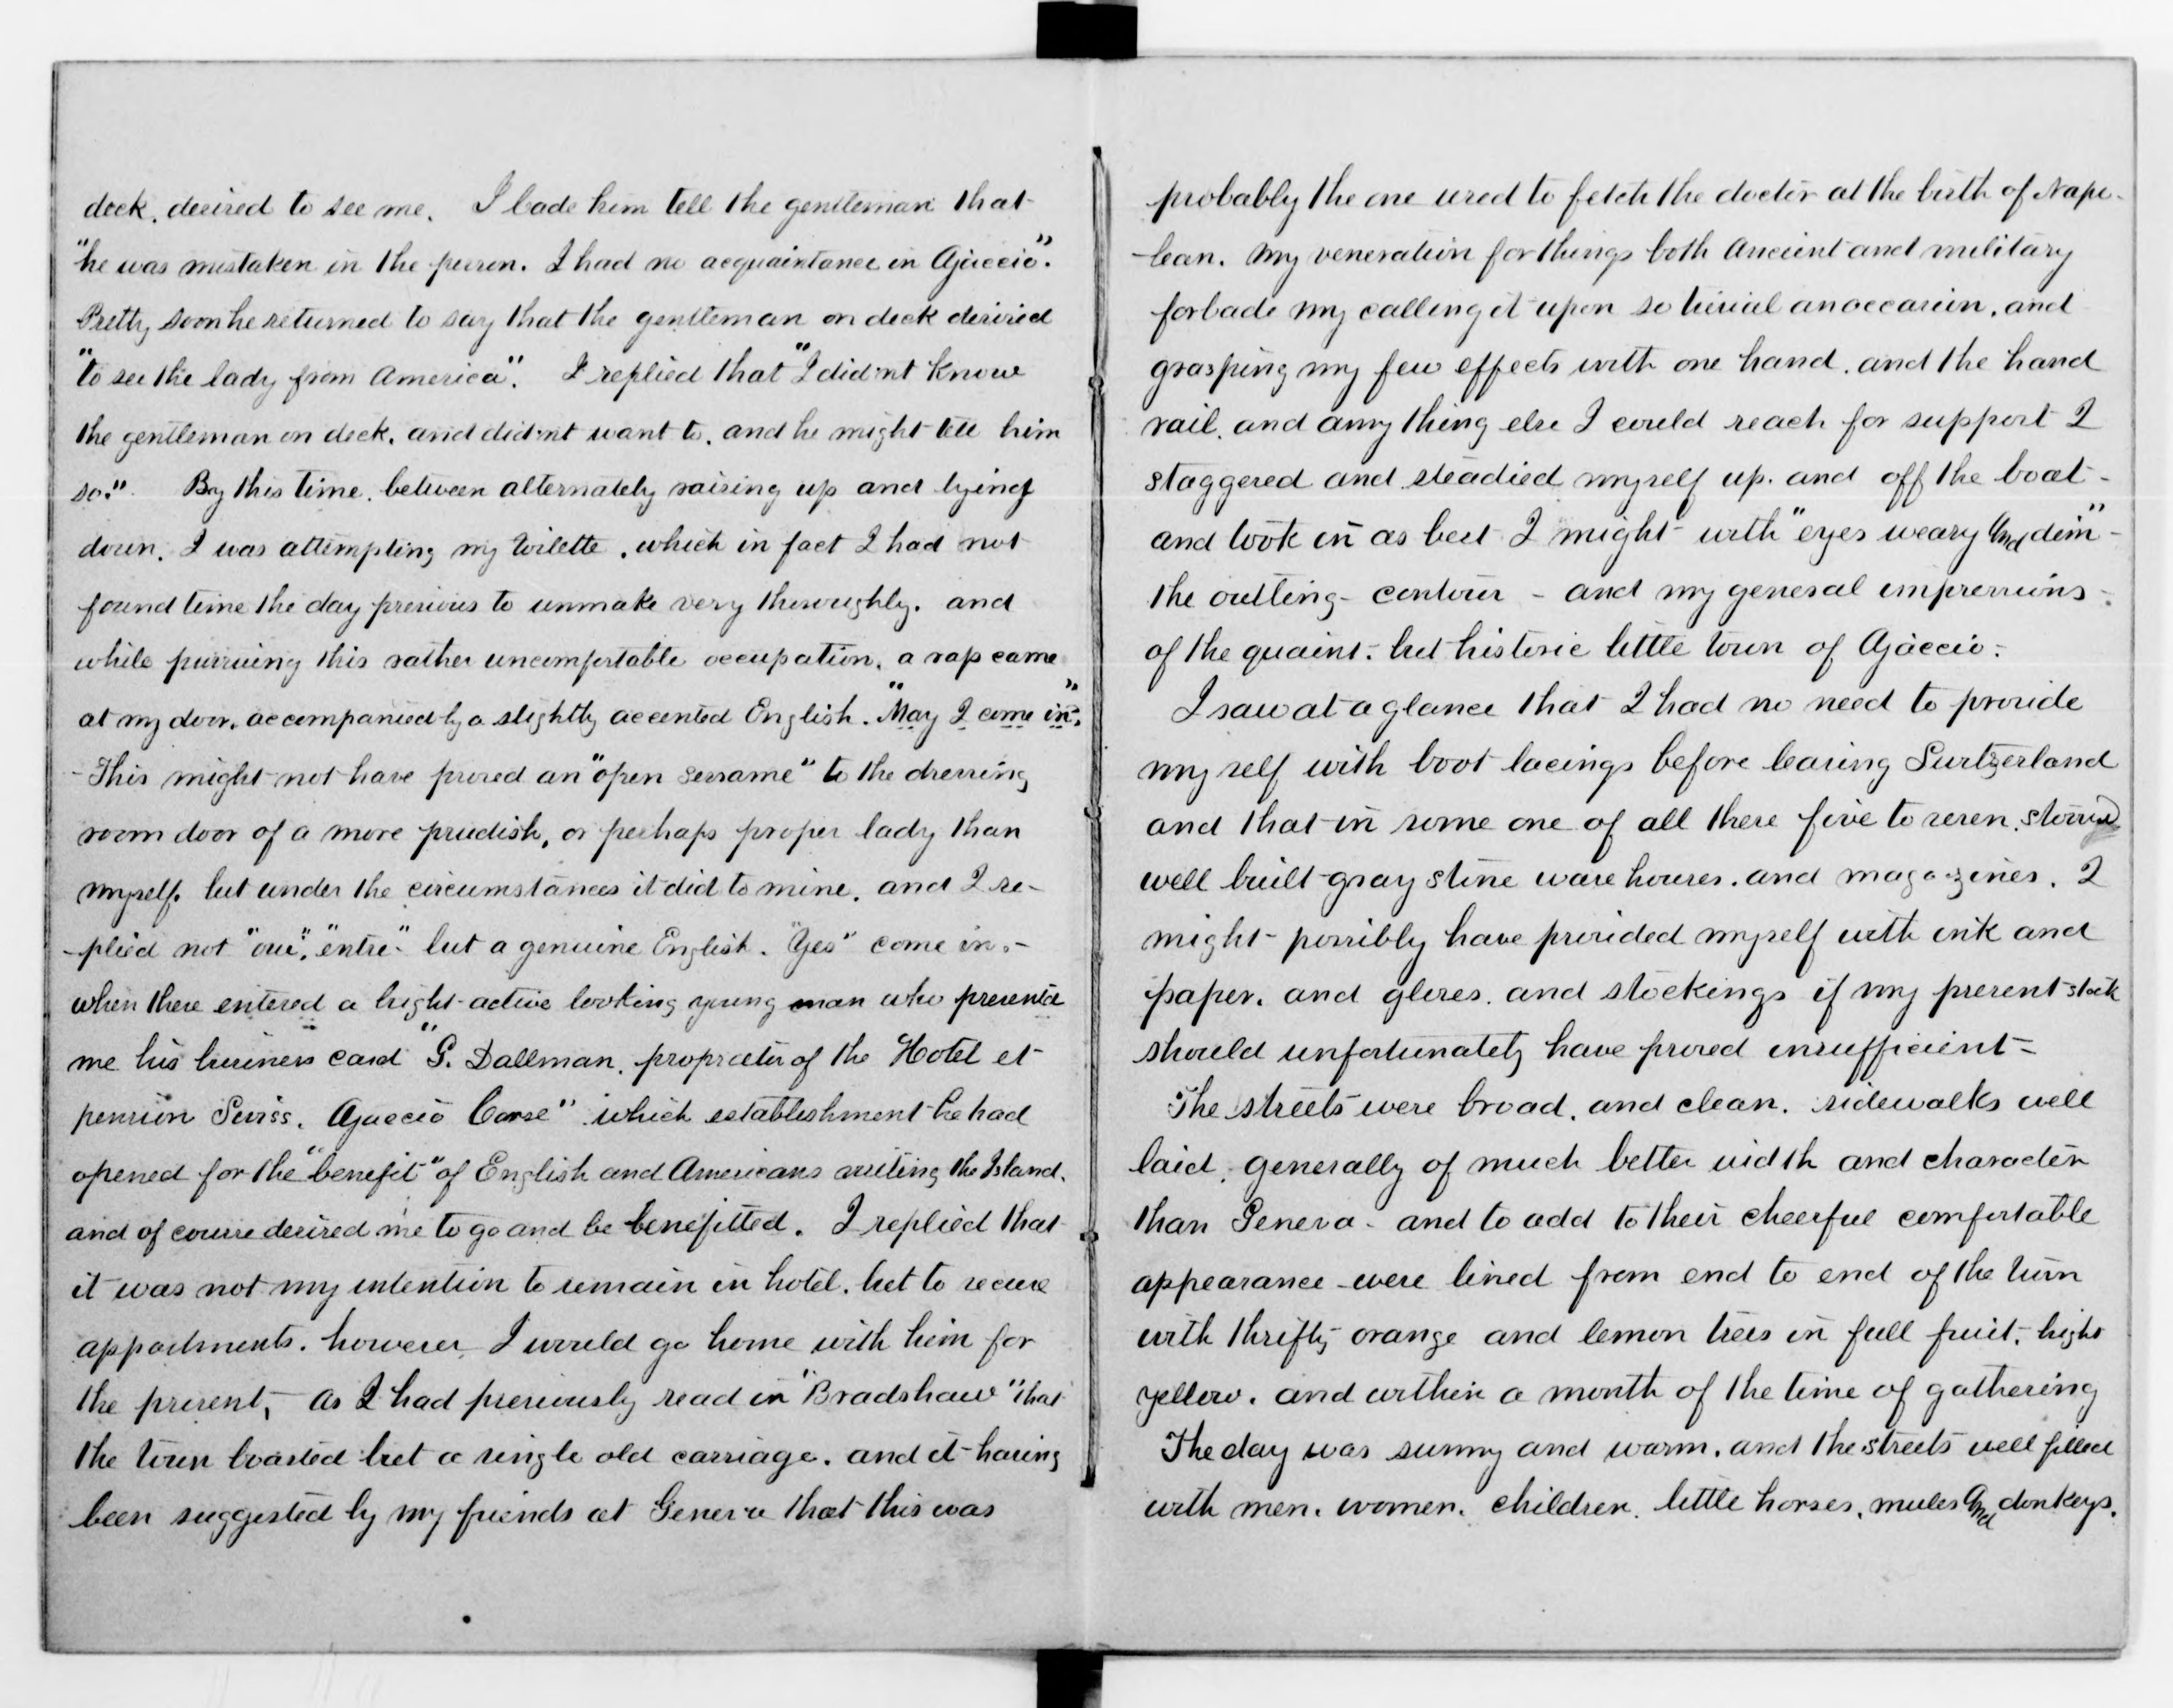 deck, desired to see me. I bade him tell the gentleman that
"he was mistaken in the person. I had no acquaintance in Ajaccio".
Pretty soon he returned to say that the gentleman on deck desired
"to see the lady from America". I replied that "I did'nt know
the gentleman on deck, and did'nt want to, and he might tell him
so." By this time, between alternately raising up and lying
down, I was attempting my toilette, which in fact I had not
found time the day previous to unmake very thoroughly, and
while pursuing this rather uncomfortable occupation, a rap came
at my door, accompanied by a slightly accented English. "May I come in".
- This might not have proved an "open sessame" to the dressing
room door of a more prudish, or perhaps proper lady than
myself, but under the circumstances it did to mine, and I re-
-plied not "oui", "entre" but a genuine English. "Yes" come in, -
when there entered a bright active looking young man who presented
me his business card "G. Dallman, proprietor of the Hotel et
pension Swiss, Ajaccio Corse" which establishment he had
opened for the "benefit" of English and Americans visiting the Island,
and of course desired me to go and be benefitted. I replied that
it was not my intention to remain in hotel, but to secure
appartments, however I would go home with him for
the present, - As I had previously read in "Bradshaw" that
the town boasted but a single old carriage, and it having
been suggested by my friends at Geneva that this was
probably the one used to fetch the doctor at the birth of Napo-
-lean. My veneration for things both Ancient and military
forbade my calling it upon so trivial an occasion, and
grasping my few effects with one hand, and the hand
rail, and any thing else I could reach for support I
staggered and steadied myself up, and off the boat -
and took in as best I might with "eyes weary And dim" -
the outting - contour - and my general impressions -
of the quaint - but historic little town of Ajaccio -
I saw at a glance that I had no need to provide
my self with boot lacings before leaving Switzerland
and that in some one of all these five to seven storied
well built gray stone ware houses, and magazines, I
might possibly have provided myself with ink and
paper, and gloves, and stockings if my present stock
should unfortunately have proved insufficient -
The streets were broad, and clean, sidewalks well
laid, generally of much better width and character
than Geneva - and to add to their cheerful comfortable
appearance - were lined from end to end of the town
with thrifty orange and lemon trees in full fruit, bright
yellow, and within a month of the time of gathering
The day was sunny and warm, and the streets well filled
with men, women, children, little horses, mules And donkeys,